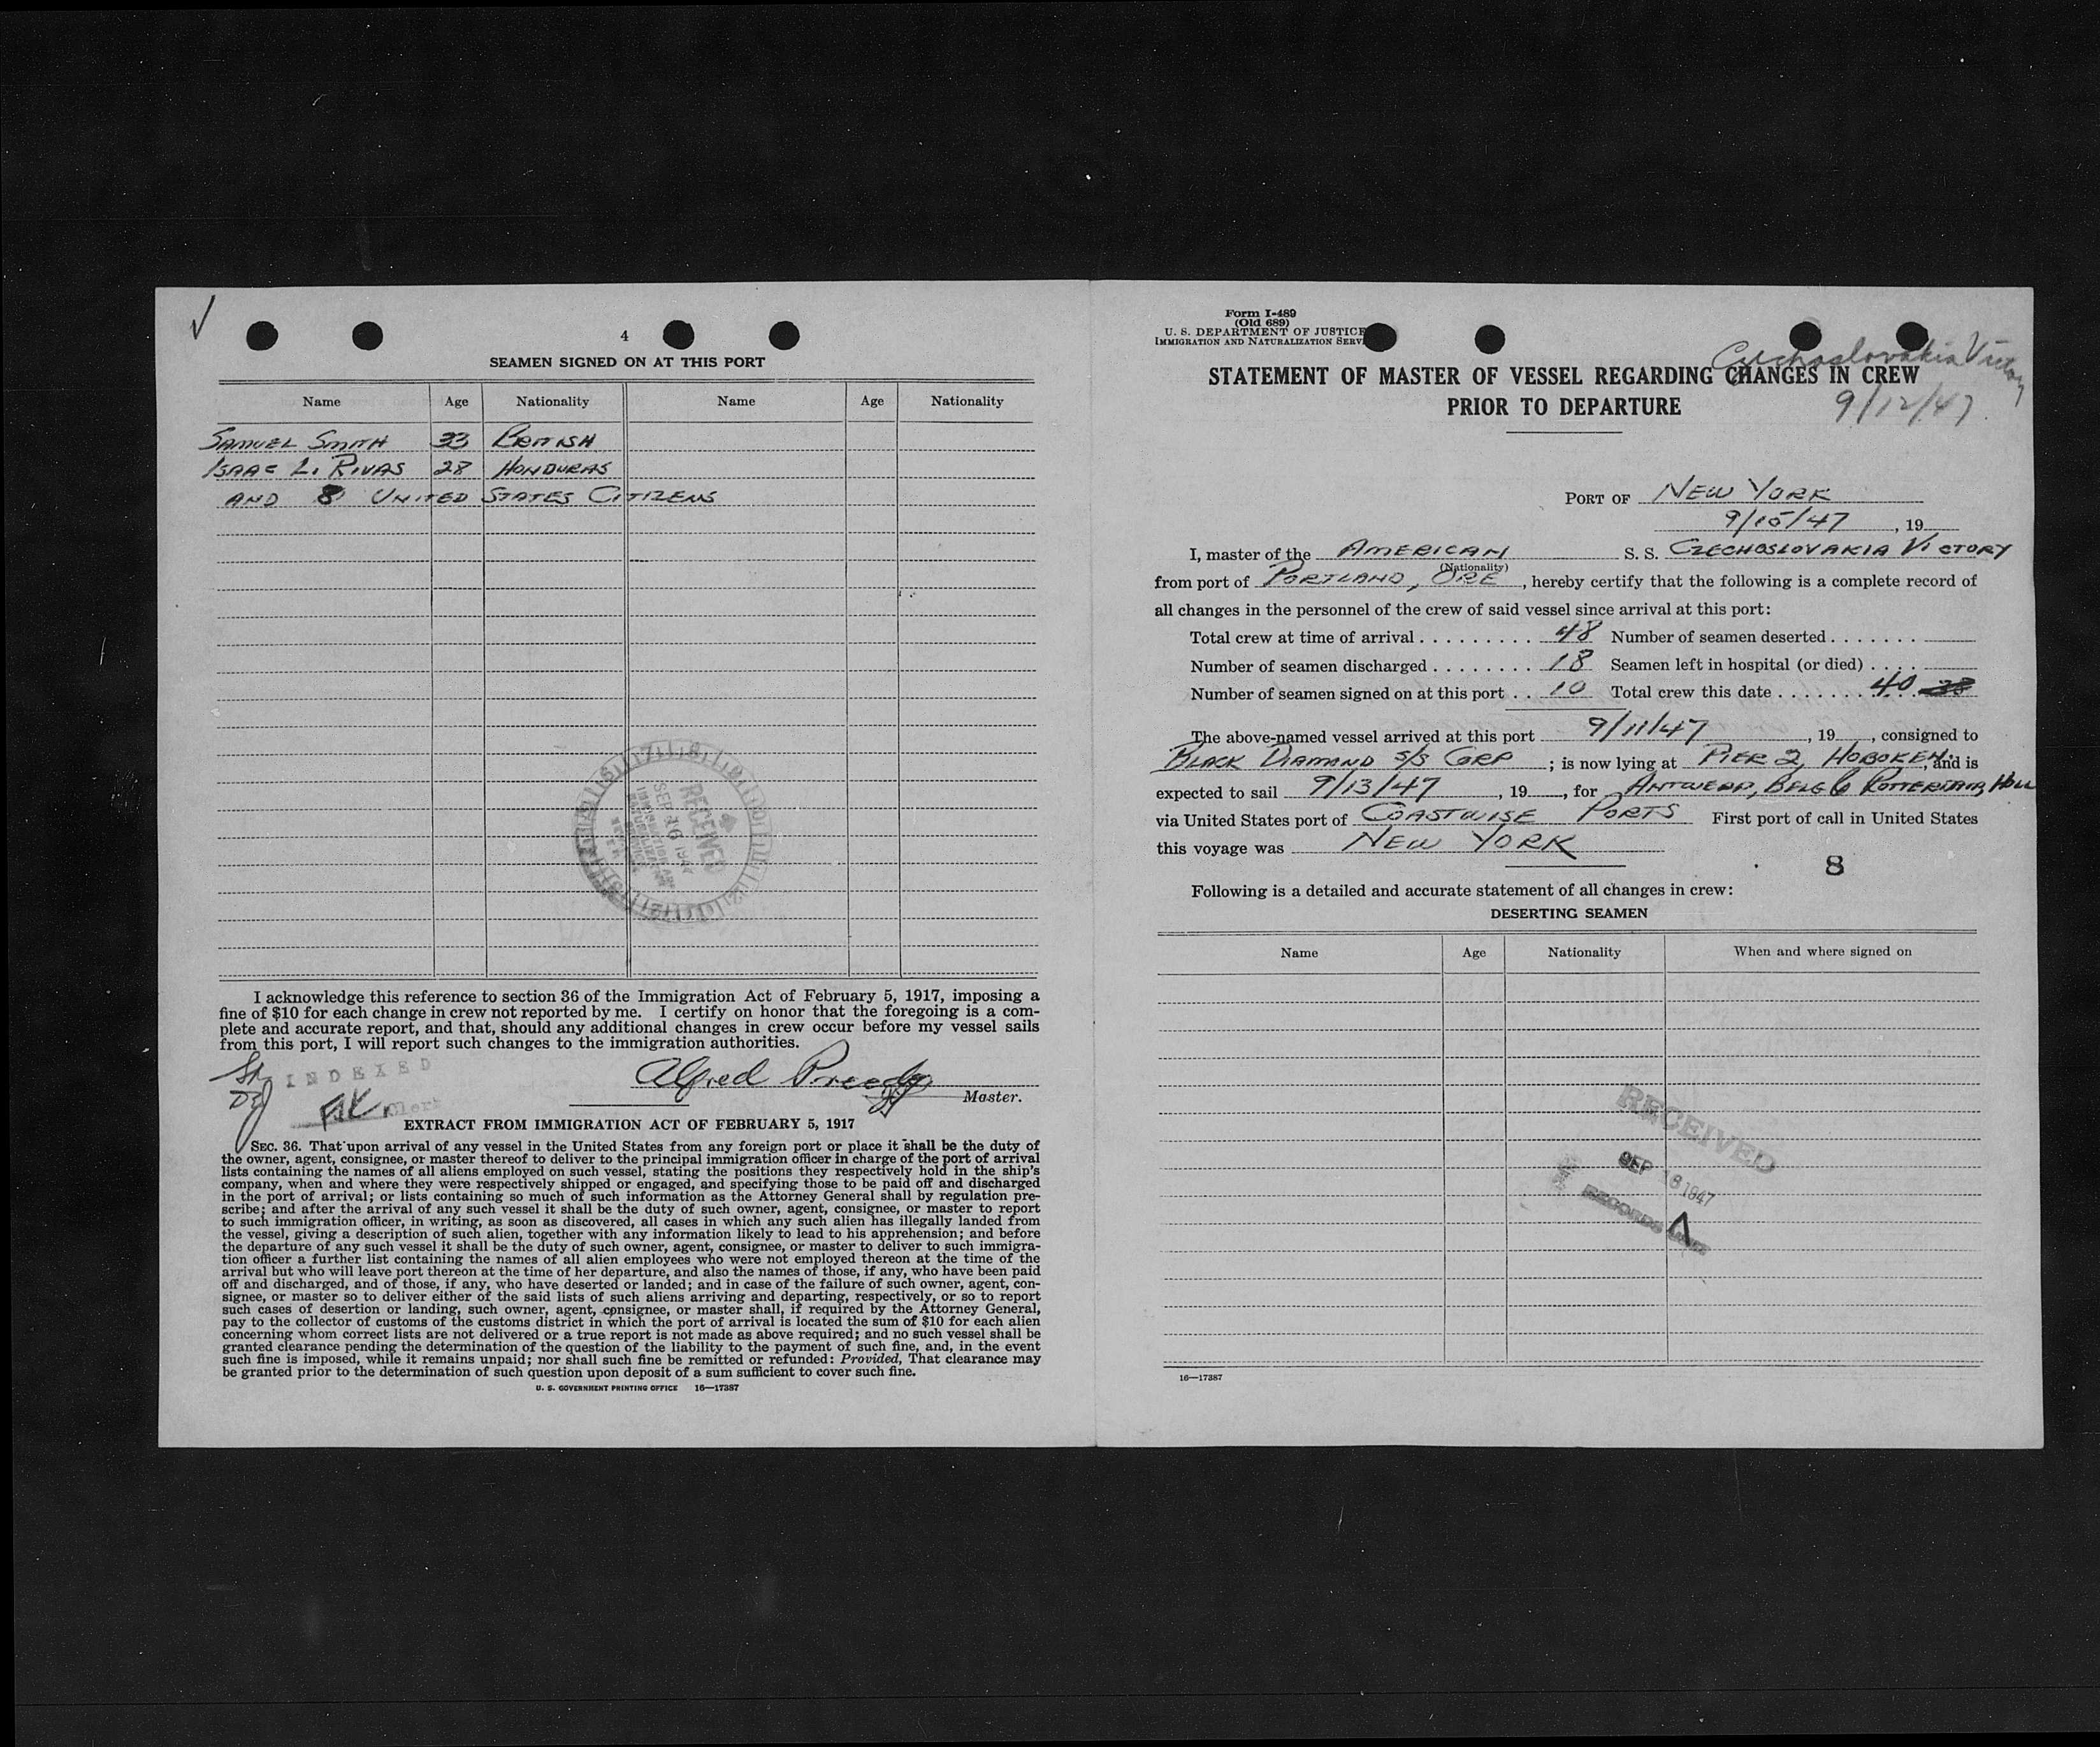 4
SEAMEN SIGNED ON AT THIS PORT
Name Age Nationality Name Age Nationality
SAMUEL SMITH 33 BRITISH
ISAAC L. RIVAS 28 HONDURAS
AND 8 UNITED STATES CITIZENS
RECEIVED
SEP 16 1947
I acknowledge this reference to section 36 of the Immigration Act of February 5, 1917, imposing a
fine of $10 for each change in crew not reported by me. I certify on honor that the foregoing is a com-
plete and accurate report, and that, should any additional changes in crew occur before my vessel sails
from this port, I will report such changes to the immigration authorities.
INDEXED
Clerk
Alfred Preedy
Master.
EXTRACT FROM IMMIGRATION ACT OF FEBRUARY 5, 1917
SEC. 36. That upon arrival of any vessel in the United States from any foreign port or place it shall be the duty of
the owner, agent, consignee, or master thereof to deliver to the principal immigration officer in charge of the port of arrival
lists containing the names of all aliens employed on such vessel, stating the positions they respectively hold in the ship's
company, when and where they were respectively shipped or engaged, and specifying those to be paid off and discharged
in the port of arrival; or lists containing so much of such information as the Attorney General shall by regulation pre-
scribe; and after the arrival of any such vessel it shall be the duty of such owner, agent, consignee, or master to report
to such immigration officer, in writing, as soon as discovered, all cases in which any such alien has illegally landed from
the vessel, giving a description of such alien, together with any information likely to lead to his apprehension; and before
the departure of any such vessel it shall be the duty of such owner, agent, consignee, or master to deliver to such immigra-
tion officer a further list containing the names of all alien employees who were not employed thereon at the time of the
arrival but who will leave port thereon at the time of her departure, and also the names of those, if any, who have been paid
off and discharged, and of those, if any, who have deserted or landed; and in case of the failure of such owner, agent, con-
signee, or master so to deliver either of the said lists of such aliens arriving and departing, respectively, or so to report
such cases of desertion or landing, such owner, agent, consignee, or master shall, if required by the Attorney General,
pay to the collector of customs of the customs district in which the port of arrival is located the sum of $10 for each alien
concerning whom correct lists are not delivered or a true report is not made as above required; and no such vessel shall be
granted clearance pending the determination of the question of the liability to the payment of such fine, and, in the event
such fine is imposed, while it remains unpaid; nor shall such fine be remitted or refunded: Provided, That clearance may
be granted prior to the determination of such question upon deposit of a sum sufficient to cover such fine.
U. S. GOVERNMENT PRINTING OFFICE 16—17387
Form I-489
(Old 689)
U. S. DEPARTMENT OF JUSTICE
IMMIGRATION AND NATURALIZATION SERV
Czechoslovakia Victory
STATEMENT OF MASTER OF VESSEL REGARDING CHANGES IN CREW
PRIOR TO DEPARTURE
9/12/47
PORT OF NEW YORK
9/15/47, 19
I, master of the AMERICAN S. S. CZECHOSLOVAKIA VICTORY
(Nationality)
from port of PORTLAND, ORE, hereby certify that the following is a complete record of
all changes in the personnel of the crew of said vessel since arrival at this port:
Total crew at time of arrival 48 Number of seamen deserted
Number of seamen discharged 18 Seamen left in hospital (or died)
Number of seamen signed on at this port 10 Total crew this date 40 38
The above-named vessel arrived at this port 9/11/47, 19, consigned to
BLACK DIAMOND S/S CORP; is now lying at PIER 2, HOBOKEN, and is
expected to sail 9/13/47, 19, for ANTWERP, BELG & ROTTERDAM, HOLL
via United States port of COASTWISE PORTS First port of call in United States
this voyage was NEW YORK
8
Following is a detailed and accurate statement of all changes in crew:
DESERTING SEAMEN
Name Age Nationality When and where signed on
RECEIVED
SEP 16 1947
RECORDS
16—17387